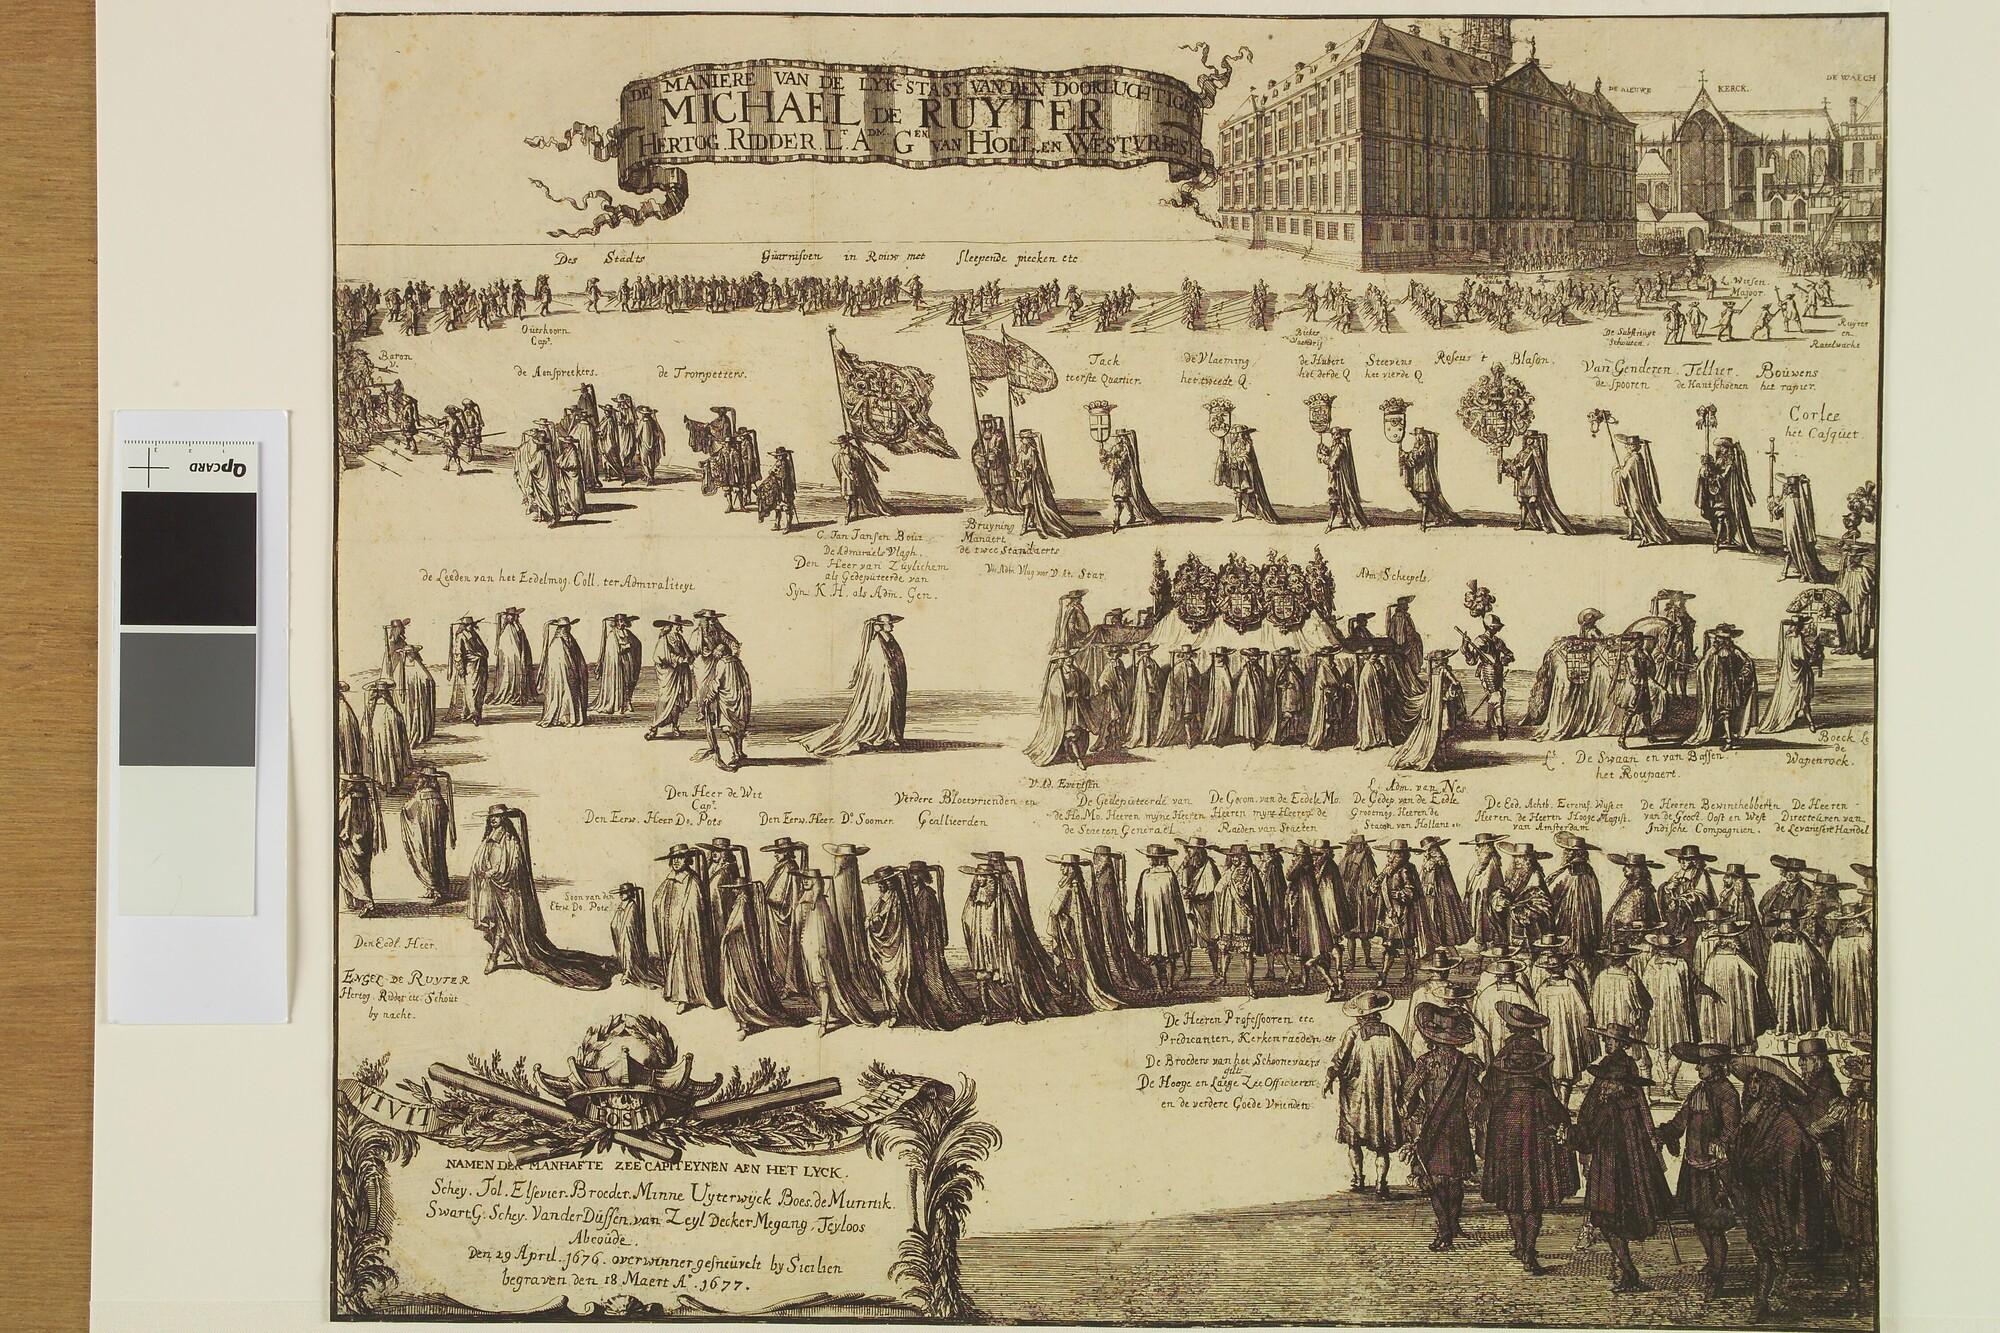 DE MANIERE VAN DE LYK-STASY VAN DEN DOORLUCHTIGE
MICHAEL DE RUYTER
HERTOG. RIDDER. L.T ADM. GEN VAN HOLL. EN WESTVRIES
DE NIEUWE KERCK.
DE WAECH
Des Stadts Guarnisoen in Rouw met sleepende piecken etc
L. Witsen.
Majoor.
Outshoorn
Capt.
De Substituyt
Schouten.
Ruyter
en
Ratelwacht
Baron
v.
de Aenspreekers.
de Trompetters.
Tack
t'eerste Quartier.
de Vlaeming
het tweede Q.
de Hubert
het derde Q
Steevens
het vierde Q
Roseus 't Blason.
Van Genderen
de Spooren
Tellier.
de Hantschoenen
Bouwens
het rapier.
Corlee
het Casquet.
C. Jan Jansen Bout
De Admiraels Vlagh.
Bruyning
Manaert
de twee Standaerts
Den Heer van Zuylichem
als Gedeputeerde van
Syn K.H. als Adm. Gen.
de Leeden van het Eedelmog. Coll. ter Admiraliteyt
Adm. Scheepels.
L.t De Swaan en van Bassen
het Roupaert.
Boeck L.t
de
Wapenrock.
Den Heer de Wit
Capt.
Den Eerw. Heer Do. Pots
Den Eerw. Heer Do. Soomer.
Verdere Bloetvrienden en
Geallieerden
V. Ad. Evertsen
De Gedeputeerde van
de Ho. Mo. Heeren myne Heeren
de Staeten Generael.
De Gecom. van de Eedele Mo.
Heeren myne Heeren de
Raeden van Staeten
L. Adm. van Nes
De Gedep. van de Eedle
Grootmog. Heeren de
Staten van Hollant etc
De Eed. Achtb. Heeren de Heeren Hooge Magist.
van Amsterdam
De Heeren Bewinthebberen
van de Geoct. Oost en West
Indische Compagnien.
De Heeren
Directeuren van
de Levantsche Handel
Soon van den
Eerw. Do. Pots
Den Eedl. Heer.
ENGEL DE RUYTER
Hertog. Ridder etc. Schout
by nacht.
De Heeren Professooren etc
Predicanten, Kerkenraeden etc
De Broeders van het Schoonevaers
gilt
De Hooge en Laege Zee Officieren
en de verdere Goede Vrienden
VIVIT POST FUNERA
NAMEN DER MANHAFTE ZEE CAPITEYNEN AEN HET LYCK.
Schey. Tol. Elsevier. Broeder. Minne Uyterwijck Boes. de Munnik.
Swart G. Schey. Van der Dussen. van Zeyl Decker Megang, Teyloos
Abcoude.
Den 29 April. 1676. overwinner gesneuvelt by Sicilien
begraven den 18 Maert Ao. 1677.
QPCARD
1 2 3